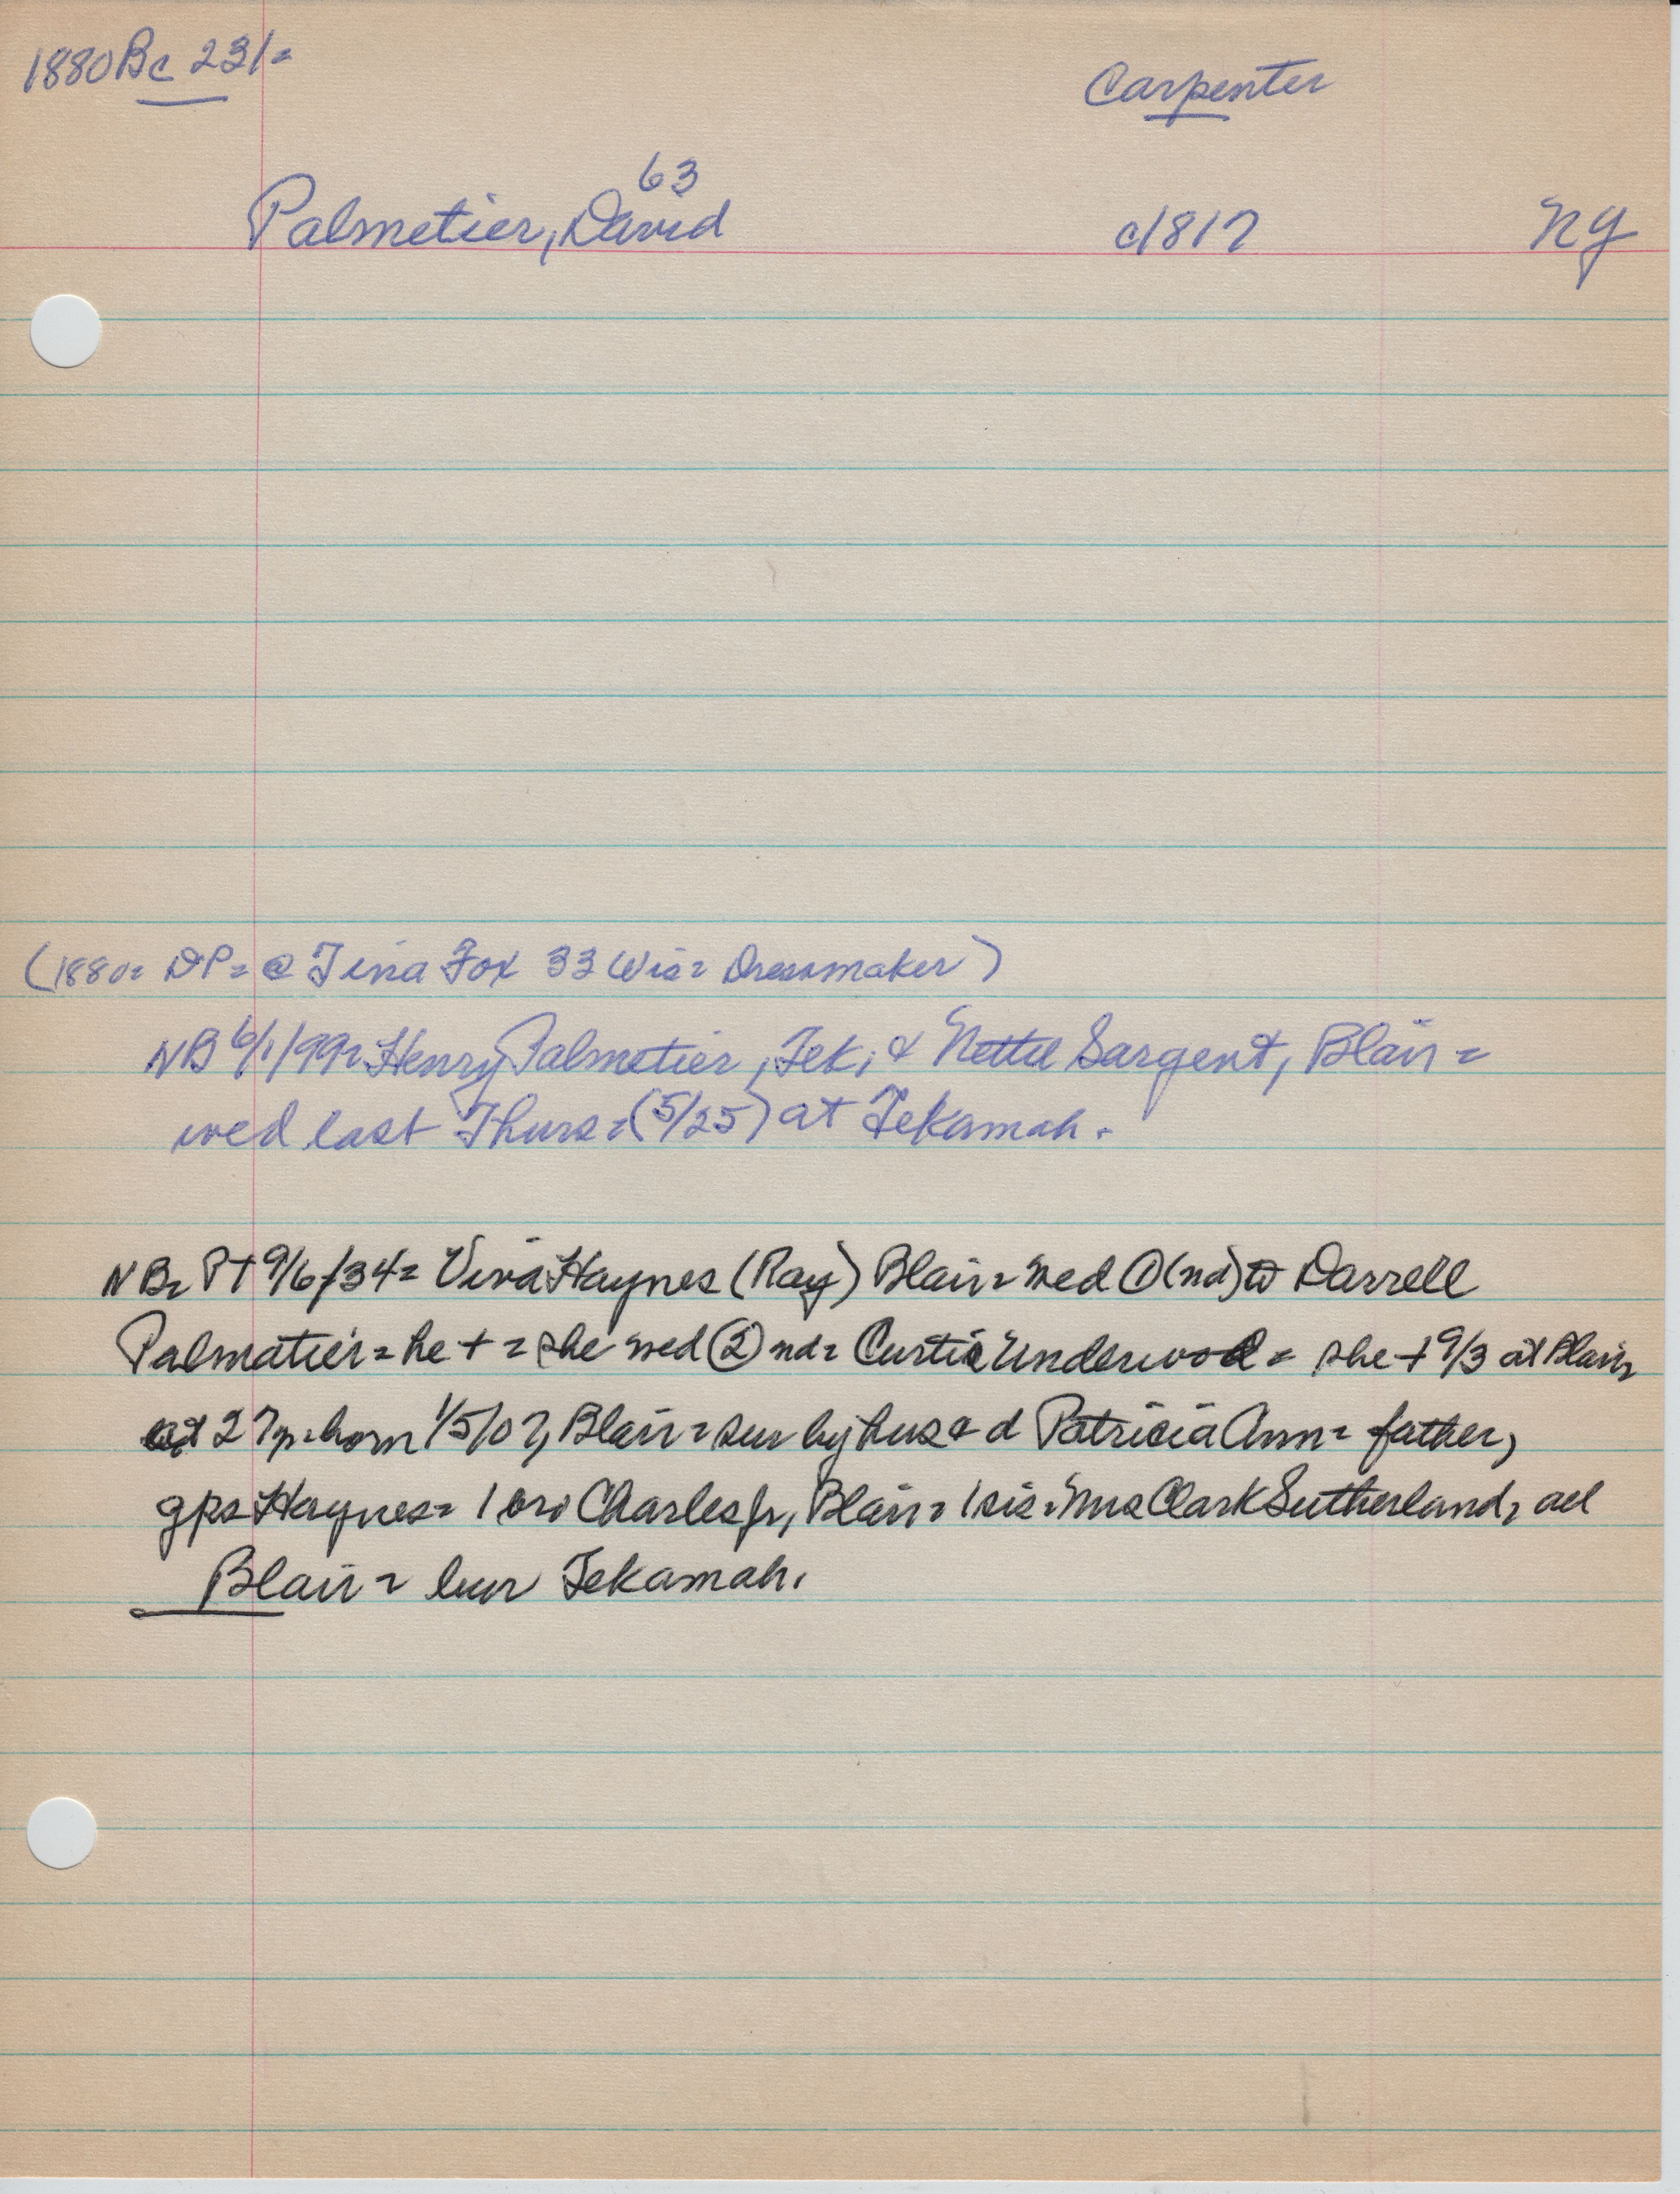 1880 Bc 231=
Carpenter
63
Palmetier, David c1817 NY
(1880= DP= @ Tina Fox 33 Wis= Dressmaker)
NB 6/1/99= Henry Palmetier, Tek, & Nettie Sargent, Blair=
wed last Thurs=(5/25) at Tekamah.
NB= PT 9/6/34= Viva Haynes (Ray) Blair= wed ①(nd) to Darrell
Palmatier= he + = she wed ② nd= Curtis Underwood= she + 9/3 at Blair=
at 27y= born 1/5/07, Blair= sur by hus & d Patricia Ann= father,
gps Haynes= 1 bro Charles Jr, Blair= 1 sis= Mrs Clark Sutherland, all
Blair= bur Tekamah.